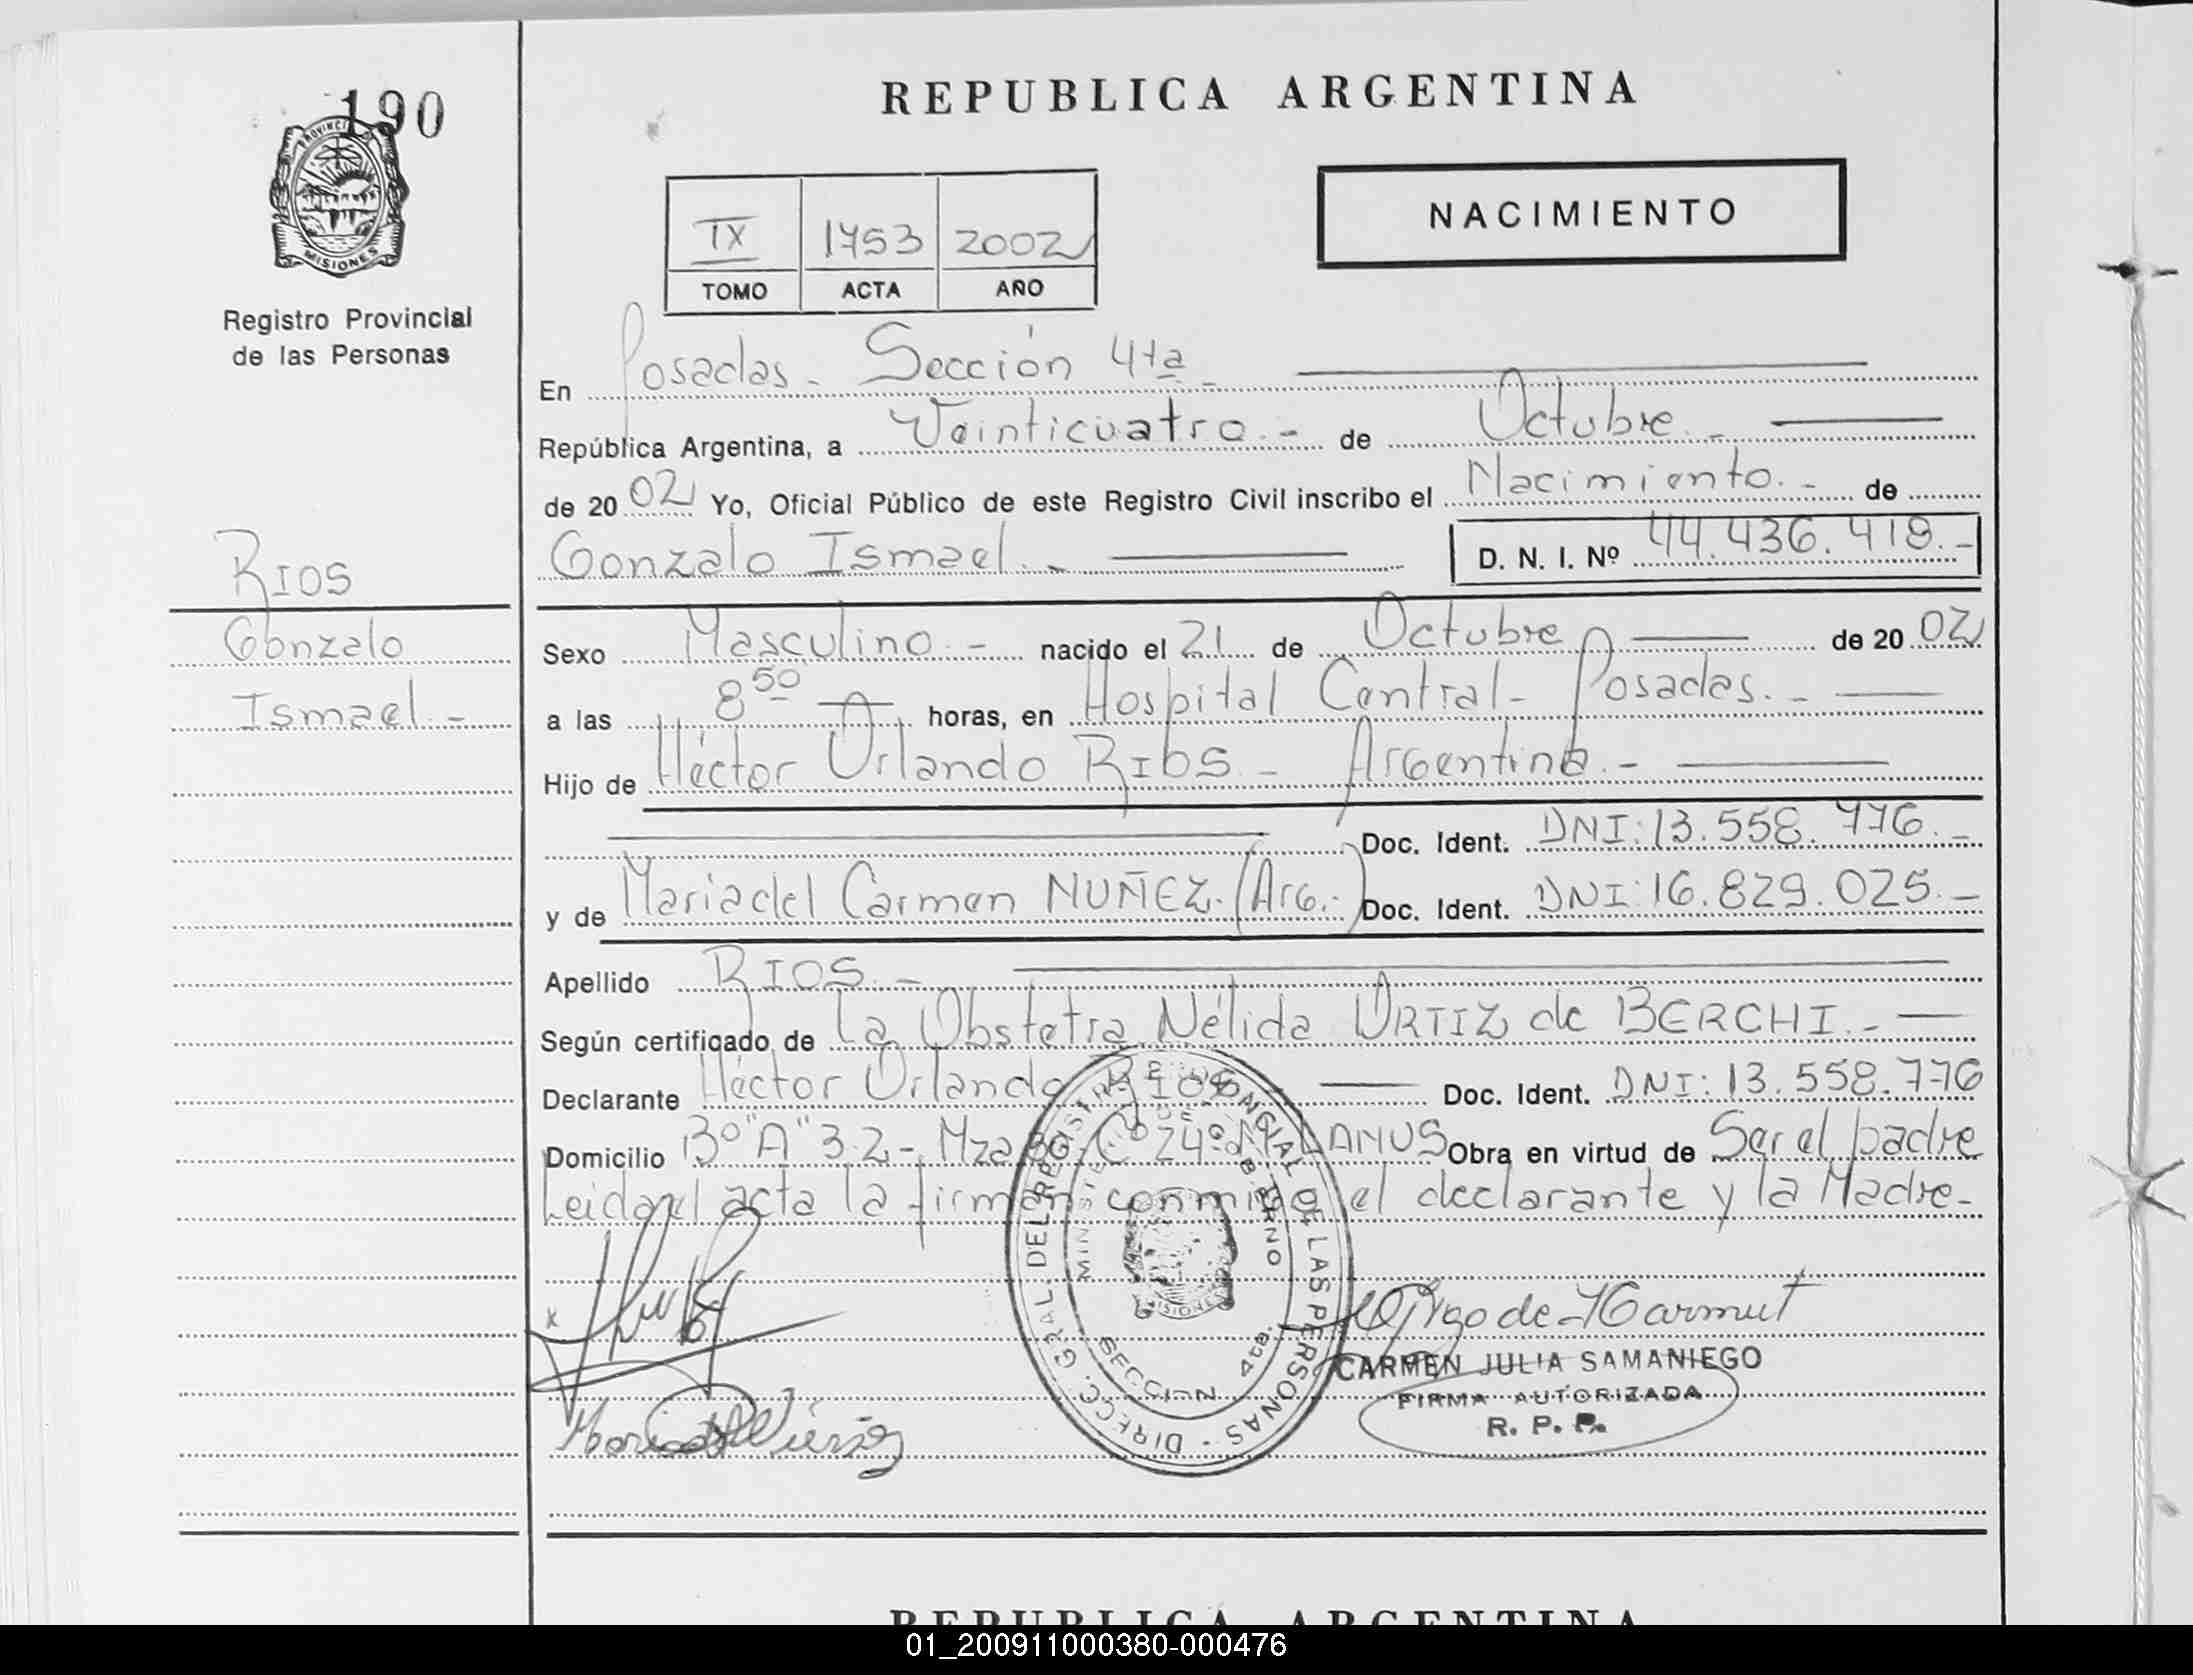 190
PROVINCIA
MISIONES
Registro Provincial
de las Personas
REPUBLICA ARGENTINA
NACIMIENTO
IX 1753 2002
TOMO ACTA AÑO
En Posadas - Sección 4ta -
República Argentina, a Veinticuatro.- de Octubre.-
de 2002 Yo, Oficial Público de este Registro Civil inscribo el Nacimiento.- de
Gonzalo Ismael.- D. N. I. Nº 44.436.418.-
RIOS
Gonzalo
Ismael.-
Sexo Masculino.- nacido el 21 de Octubre de 2002
a las 8 50 horas, en Hospital Central - Posadas.-
Hijo de Héctor Orlando RIOS.- Argentino.-
Doc. Ident. DNI: 13.558.776.-
y de Maria del Carmen NUÑEZ.- (Arg.-) Doc. Ident. DNI: 16.829.025.-
Apellido RIOS.-
Según certificado de La Obstetra Nélida ORTIZ de BERCHI.-
Declarante Héctor Orlando RIOS Doc. Ident. DNI: 13.558.776
Domicilio Bº "A" 3-2 - Mza Cº 24º Obra en virtud de Ser el padre
Leida el acta la firman conmigo el declarante y la Madre-
DIRECC. GRAL. DEL REGISTRO PROVINCIAL DE LAS PERSONAS
MISIONES
SECCION 4ta.
CARMEN JULIA SAMANIEGO
FIRMA AUTORIZADA
R. P. P.
REPUBLICA ARGENTINA
01_200911000380-000476